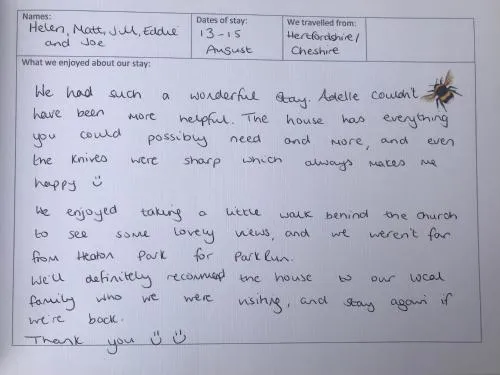 Names:
Helen, Matt, J.M, Eddie
and Joe
Dates of stay:
13-15
August
We travelled from:
Hertfordshire/
Cheshire
What we enjoyed about our stay:
We had such a wonderful stay. Adelle couldn't
have been more helpful. The house has everything
you could possibly need and more, and even
the knives were sharp which always makes me
happy :)
We enjoyed taking a little walk behind the church
to see some lovely views, and we weren't far
from Heaton Park for ParkRun.
We'll definitely recommend the house to our local
family who we were visiting, and stay again if
we're back.
Thank you :) :)